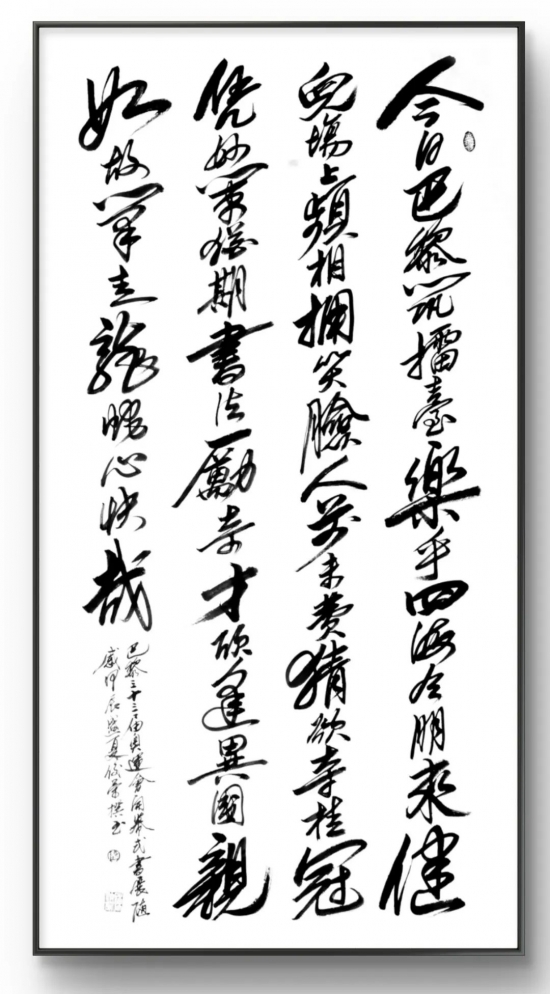 今日巴黎筑擂臺樂乎四海令朋來健
兒場上頻相擁笑臉人前未費猜欲奪桂冠
凭妙筆猶期書法勵奇才欣逢異國親
如故筆走龍蛇心快哉
巴黎三十三屆奧運會開幕式書展隨
感甲辰盛夏